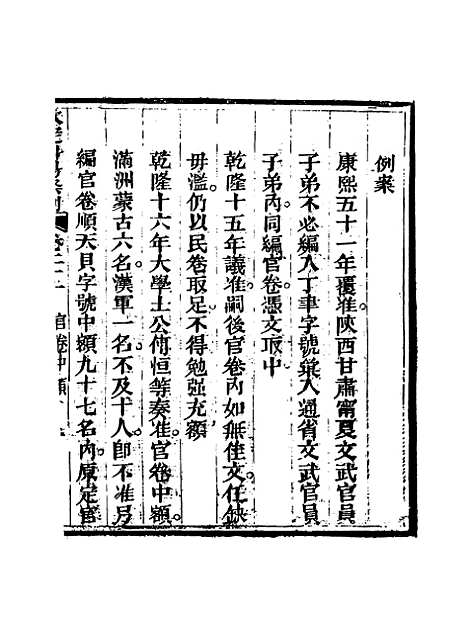 例案
康熙五十一年覆准陝西甘肅甯夏文武官員
子弟不必編入丁聿字號彙入通省文武官員
子弟內同編官卷憑文取中
乾隆十五年議准嗣後官卷內如無佳文任缺
毋濫仍以民卷取足不得勉强充額
乾隆十六年大學士公傅恒等奏准官卷中額
滿洲蒙古六名漢軍一名不及十人卽不准另
編官卷順天貝字號中額九十七名內原定官
官卷中額